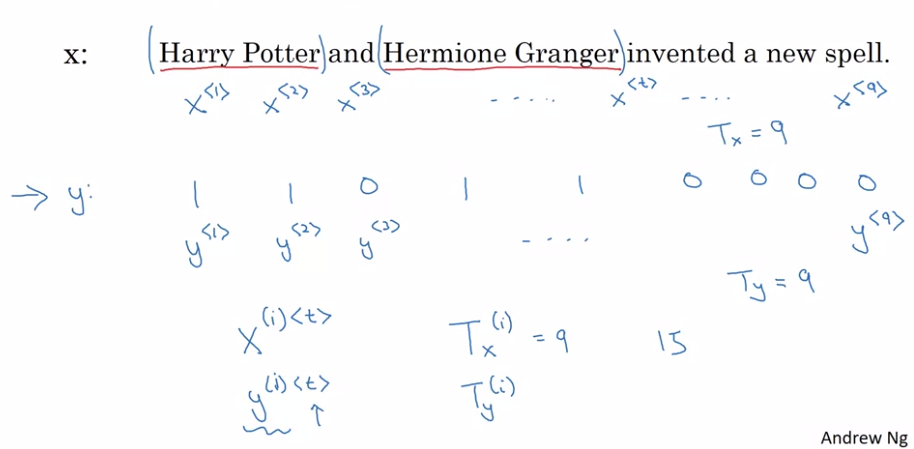 x: (Harry Potter) and (Hermione Granger) invented a new spell.
x<1> x<2> x<3> ..... x<t> .... x<9>
Tx = 9
→ y: 1 1 0 1 1 0 0 0 0
y<1> y<2> y<3> .... y<9>
Ty = 9
X(i)<t> Tx(i) = 9 15
y(i)<t> ↑ Ty(i)
Andrew Ng